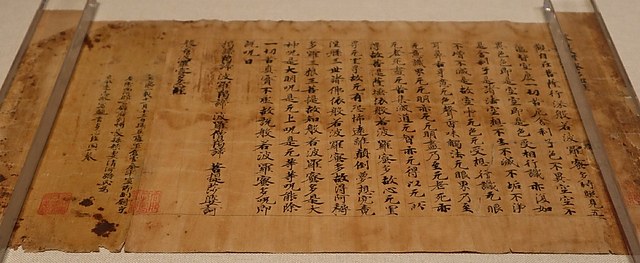 觀自在菩薩行深般若波羅蜜多時照見五
蘊皆空度一切苦厄舍利子色不異空空不
異色色即是空空即是色受想行識亦復如
是舍利子是諸法空相不生不滅不垢不淨
不增不減是故空中无色无受想行識无眼
耳鼻舌身意无色聲香味觸法无眼界乃至
无意識界无无明亦无无明盡乃至无老死亦
无老死盡无苦集滅道无智亦无得以无所
得故菩提薩埵依般若波羅蜜多故心无罣
礙无罣礙故无有恐怖遠離顛倒夢想究竟
涅槃三世諸佛依般若波羅蜜多故得阿耨
多羅三藐三菩提故知般若波羅蜜多是大
神呪是大明呪是无上呪是无等等呪能除
一切苦真實不虛故說般若波羅蜜多呪即
說呪曰
揭諦揭諦 波羅揭諦 波羅僧揭諦 菩提莎婆訶